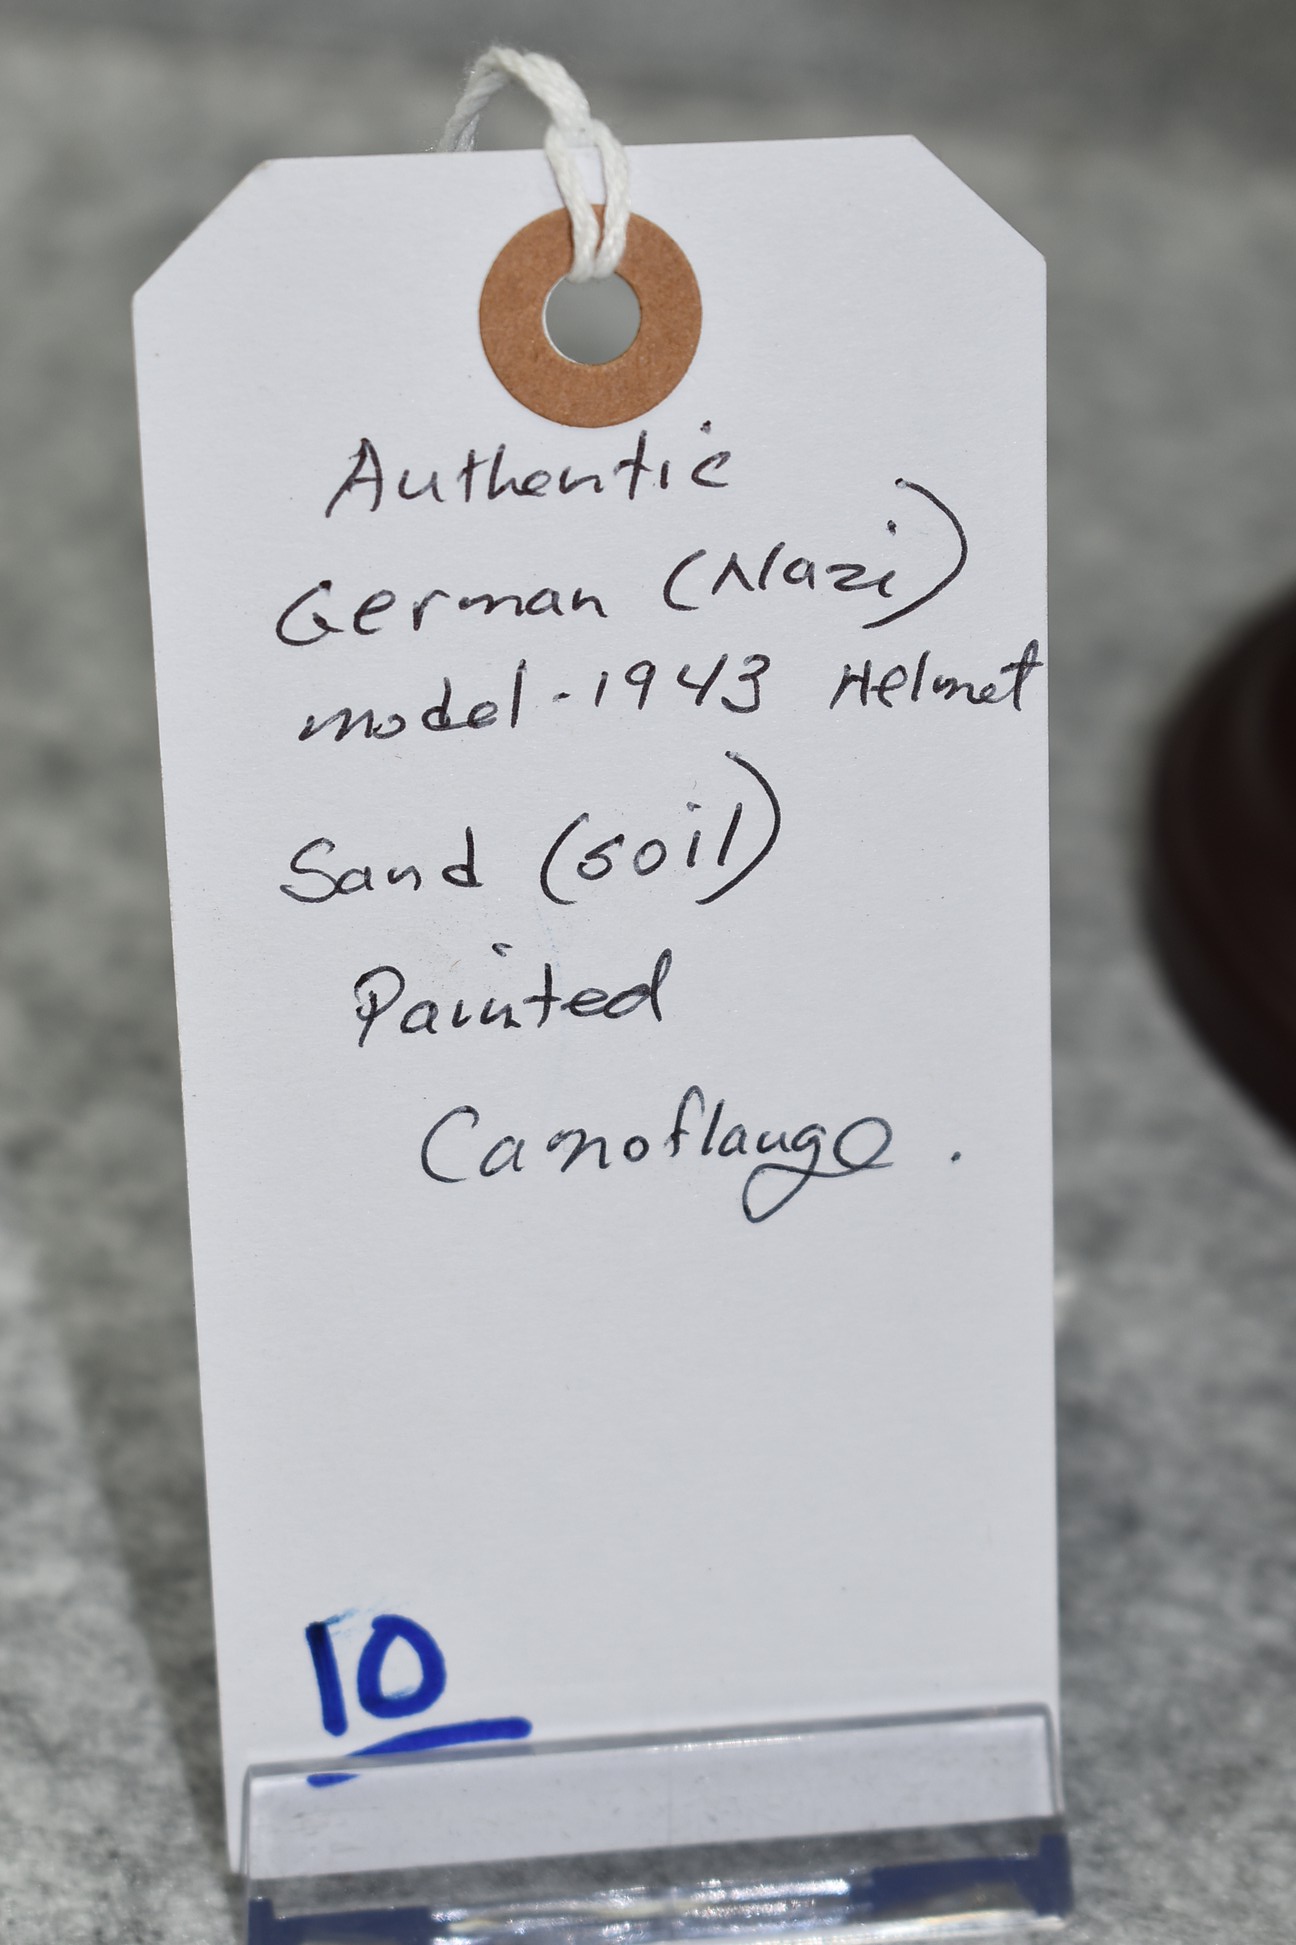 Authentic
German (Nazi)
model-1943 Helmet
Sand (soil)
Painted
Camoflauge.
10